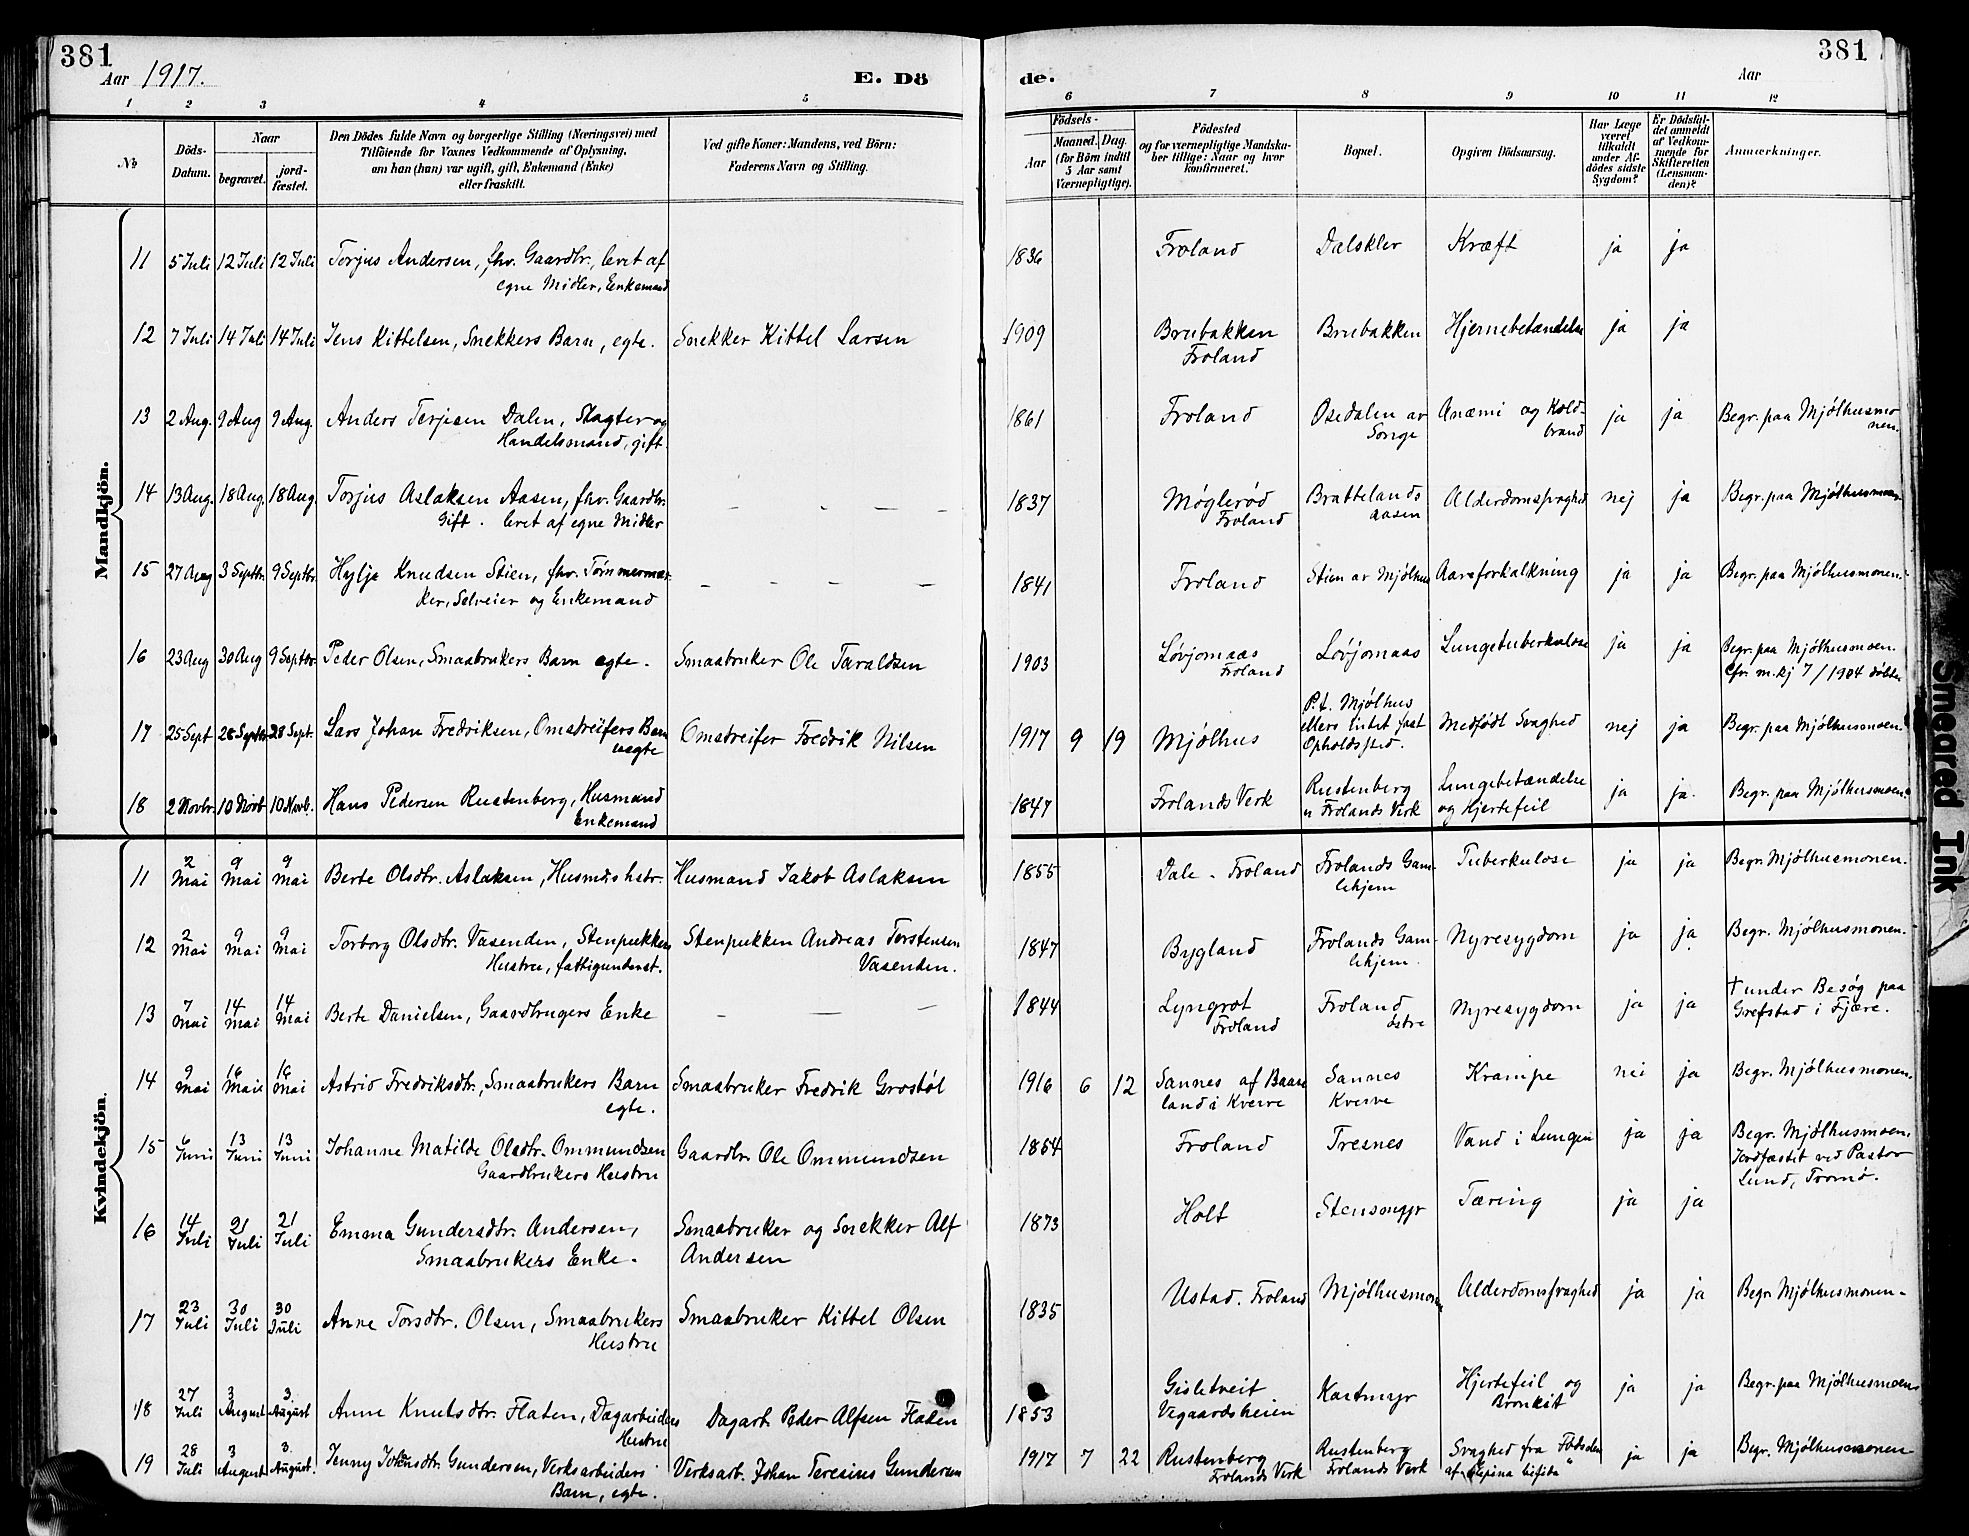 381
Aar 1917.
E. Dö
de.
Aar
381
1 2 3 4 5
6 7 8 9 10 11 12
No
Döds-Datum.
Naar
begravet.
jordfæstet.
Den Dödes fulde Navn og borgerlige Stilling (Næringsvei) med
Tilföiende for Voxnes Vedkommende af Oplysning,
om han (hun) var ugift, gift, Enkemand (Enke)
eller fraskilt.
Ved gifte Koner: Mandens, ved Börn:
Faderens Navn og Stilling.
Födsels-
Aar
Maaned. Dag.
(for Börn indtil
5 Aar samt
Værnepligtige).
Födested
og for værnepligtige Mandskaber tillige: Naar og hvor
konfirmeret.
Bopæl.
Opgiven Dödsaarsag.
Har Læge
været
tilkaldt
under Afdödes sidste
Sygdom?
Er Dödsfaldet anmeldt
af Vedkommende for
Skifteretten
(Lensmanden)?
Anmærkninger.
Mandkjön.
11 5 Juli 12 Juli 12 Juli Torjus Andersen, fhv. Gaardbr., levet af
egne Midler, Enkemand
1836 Froland Dalskler Kræft ja ja
12 7 Juli 14 Juli 14 Juli Jens Kittelsen, Snekkers Barn, egte. Snekker Kittel Larsen
1909 Brubakken
Froland
Brubakken Hjernebetændelse ja ja
13 2 Aug. 9 Aug 9 Aug. Anders Terjesen Dalen, Slagter og
Handelsmand, gift.
1861 Froland Osedalen av
Songe
Anæmi og Koldbrand
ja ja Begr. paa Mjölhusmonen.
14 13 Aug. 18 Aug. 18 Aug. Torjus Aslaksen Aasen, fhv. Gaardbr.
Gift. levet af egne Midler
1837 Møglerød
Froland
Brattelandsaasen
Alderdomssvaghed nej ja Begr. paa Mjölhusmoen
15 27 Aug 3 Septbr. 9 Septbr. Hylje Knudsen Stien, fhv. Tømmermærker, Selveier og Enkemand
1841 Froland Stien av Mjölhus Aareforkalkning ja ja Begr. paa Mjölhusmonen.
16 23 Aug 30 Aug 9 Septbr. Peder Olsen, Smaabrukers Barn egte. Smaabruker Ole Taraldsen
1903 Løvjomaas
Froland
Løvjomaas Lungetuberkulose ja ja Begr. paa Mjölhusmoen.
Cfr. m.kj 7/1904 døbte
17 25 Sept 28 Septbr 28 Sept. Lars Johan Fredriksen, Omstreifers Barn
uegte
Omstreifer Fredrik Nilsen
1917 9 19 Mjölhus P.t. Mjölhus
ellers intet fast
Opholdssted.
Medfødt Svaghed nej ja Begr. paa Mjölhusmoen.
18 2 Novbr. 10 Novb 10 Novb. Hans Pedersen Rustenberg, Husmand
Enkemand
1847 Frolands Verk Rustenberg
u Frolands Verk
Lungebetændelse
og Hjertefeil
ja ja. Begr. paa Mjölhusmoen.
Kvindekjön.
11 2 Mai 9 Mai 9 Mai Berte Olsdtr. Aslaksen, Husmds hstr. Husmand Jakob Aslaksen
1855 Dale. Froland Frolands Gamlehjem
Tuberkulose ja ja Begr. Mjölhusmonen.
12 2 Mai 9 Mai 9 Mai Torborg Olsdtr. Vasenden, Stenpukkers
Hustru, fattigunderst.
Stenpukker Andreas Terstensen
Vasenden.
1847 Bygland Frolands Gamlehjem.
Nyresygdom ja ja Begr. Mjölhusmonen.
13 7 Mai 14 Mai 14 Mai Berte Danielsen, Gaardbrugers Enke
1844 Lyngrot
Froland
Froland
østre
Nyresygdom ja ja † under Besøg paa
Grefstad i Fjære.
14 9 Mai 16 Mai 16 Mai Astrid Fredriksdtr., Smaabrukers Barn
egte.
Smaabruker Fredrik Grostøl
1916 6 12 Sannes af Baaseland i Kverve
Sannes
Kverve
Krampe nei ja Begr. Mjölhusmonen.
15 6 Juni 13 Juni 13 Juni Johanne Matilde Olsdtr. Ommundsen
Gaardbrukers Hustru
Gaardbr. Ole Ommundsen
1854 Froland Tresnes Vand i Lungen ja ja Begr. Mjölhusmoen.
Jordfæstet ved Pastor
Lund, Tromø.
16 14 Juli 21 Juli 21 Juli Emma Gundersdtr. Andersen,
Smaabrukers Enke.
Smaabruker og Snekker Alf
Andersen
1873 Holt Stensmyr Tæring ja ja
17 23 Juli 30 Juli 30 Juli Anne Torsdtr. Olsen, Smaabrukers
Hustru
Smaabruker Kittel Olsen
1835 Ustad. Froland Mjölhusmonen Alderdomssvaghed ja ja Begr. Mjölhusmonen.
18 27 Juli 3 August 3. August Anne Knutsdtr. Flaten, Dagarbeiders
Hustru
Dagarb. Peder Alfsen Flaten
1853 Gisletveit
Vegaardsheien
Kastmyr Hjertefeil og
Bronkit
ja ja Begr. paa Mjölhusmoen
19 28 Juli 3 August 3. August. Jenny Johansdtr. Gundersen, Verksarbeiders
Barn, egte.
Verksarb. Johan Teresius Gundersen
1917 7 22 Rustenberg
Frolands Verk
Rustenberg
Frolands Verk
Svaghed fra Fødselen
af "Spina bifida"
ja ja Begr. Mjölhusmonen
Smeared Ink